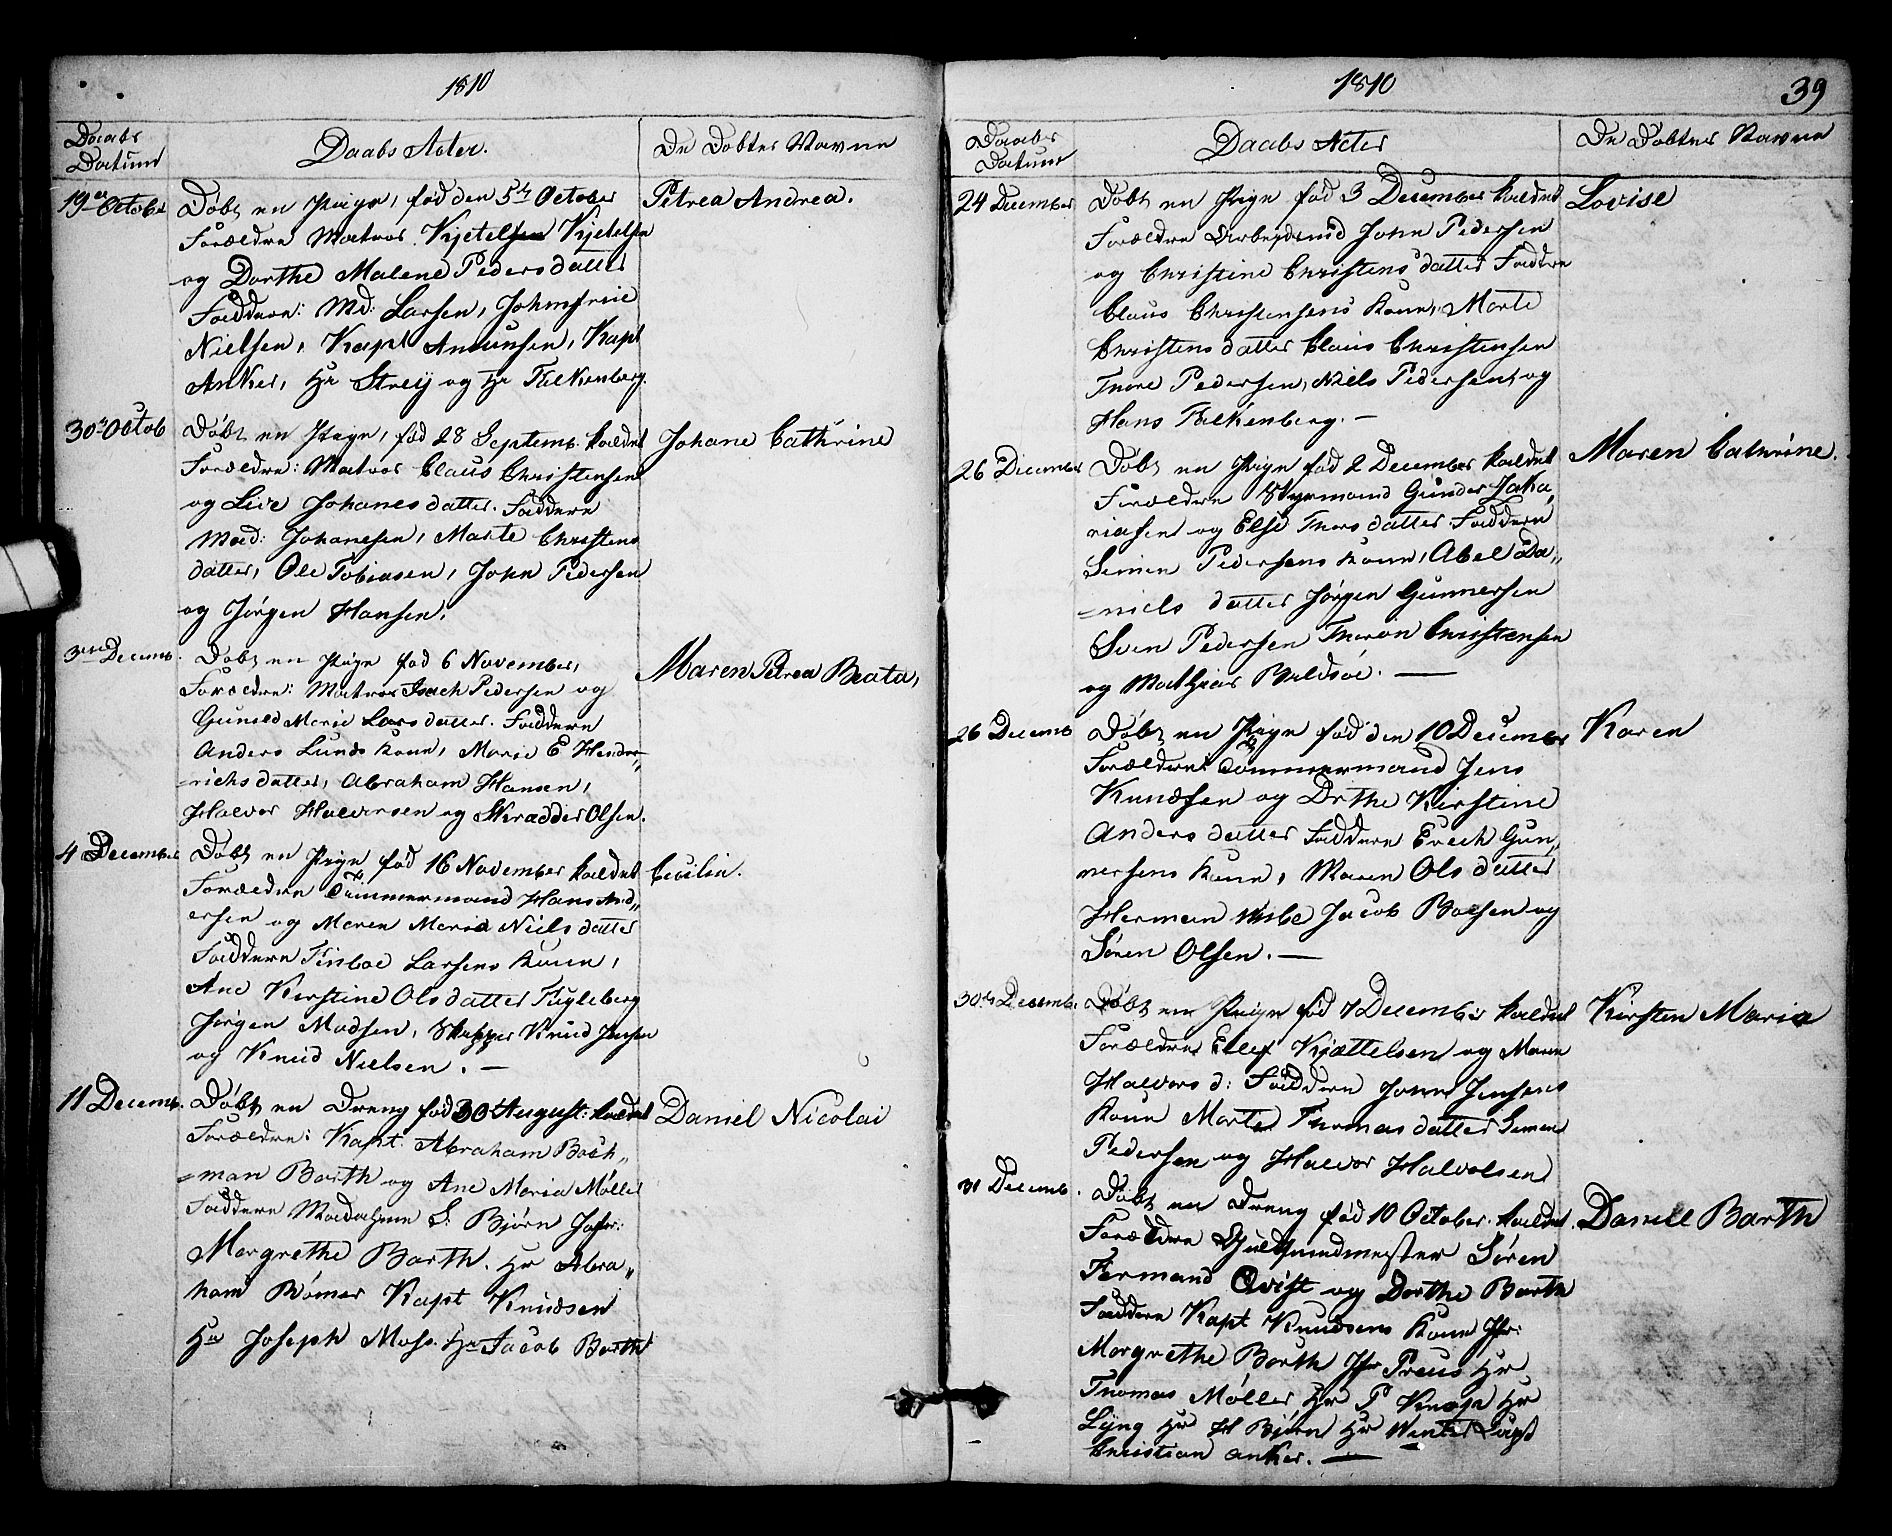 1810
Daabs Datum
Daabs Acter.
De Døbtes Navne
19de Octobr
Døbt en Pige, fød den 5te October
Petrea Andrea.
Forældre Matros Kjetelsen Kjetelsen
og Dorthe Malene Pedersdatter
Faddere: Md: Larsen, Johmfrue
Nielsen, Kapt Amunsen, Kapt
Anker, Hr Streij og Hr Falkenberg.
30te Octob
Døbt en Pige, fød 28 Septemb. kaldet
Johane Cathrine
Forældre: Matros Claus Christensen
og Live Johanesdatter. Faddere
Mad: Johanesen, Marte Christens
datter, Ole Tobiasen, John Pedersen
og Jørgen Hansen.
3die Decemb.
Døbt en Pige fød 6 November,
Maren Petrea Beata,
Forældre: Matros Isach Pedersen og
Guneld Marie Larsdatter. Faddere
Anders Lunds Kone, Marie E Hender„
=richsdatter, Abraham Hansen,
Halvor Halvorsen og Skrædder Olsen.
4 December
Døbt en Pige fød 16 November kaldet
Cicilia.
Forældre Tømmermand Hans And„
ersen og Maren Maria Nielsdatter
Faddere Finboe Larsens Kone,
Ane Kirstine Olsdatter Fugleberg
Jørgen Madsen, Skipper Knud Jensen
og Knud Nielsen. —
11 Decemb.
Døbt en Dreng fød 30 August: kaldet
Daniel Nicolai
Forældre: Kapt: Abraham Boch„
=man Barth og Ane Maria Møller
Faddere Madahme S: Bjørn Jofr:
Margrethe Barth. Hr Abra„
ham Bømer Kapt Knudsen
Hr Joseph Moss. Hr Jacob Barth
1810
39
Daabs Datum
Daabs Acter
De Døbtes Navne
24 December
Døbt en Pige fød 3 December kaldet
Lovise
Forældre Arbejdsmd John Pedersen
og Christine Christensdatter Faddere
Claus Christensens Kone, Marte
Christensdatter Claus Christensen
Tnore Pedersen, Niels Pedersen, og
Hans Falkenberg. —
26 December
Døbt en Pige fød 2 December kaldet
Maren Cathrine.
Forældre Styrmand Gunder Zaka„
riasen og Else Thorsdatter Faddere
Simen Pedersens Kone, Abel Da„
=niels datter Jørgen Gunnersen
Sven Pedersen Tnoron Christensen
og Mathias Buldsøe. —
26 Decemb
Døbt en Pige fød den 10 December
Karen
Forældre Tømmermand Jens
Knudsen og Drthe Kirstine
Andersdatter Faddere Erech Gun„
nersens Kone, Maren Olsdatter
Herman Wibe Jacob Boesen og
Søren Olsen. —
30te Decemb.
Døbt en Pige fød 7 December kaldet
Kirsten Maria
Forældre Ellef Kjættelsen og Maren
Halvors d: Faddere John Jensens
Kone Marte Tnomasdatter Simen
Pedersen og Halvor Halvolsen
31 Decemb.
Døbt en Dreng fød 10 October. kaldet
Daniel Barth
Forældre Hustømmermester Søren
Fermand Qvist og Dorthe Barth
Faddere Kapt Knudsens Kone Jfr:
Margrethe Barth Jfr Preus Hr
Tnomas Møller, Hr P Knoph Hr
Lyng Hr H Bjørn Hr Winter Luyst
Christian Anker. —